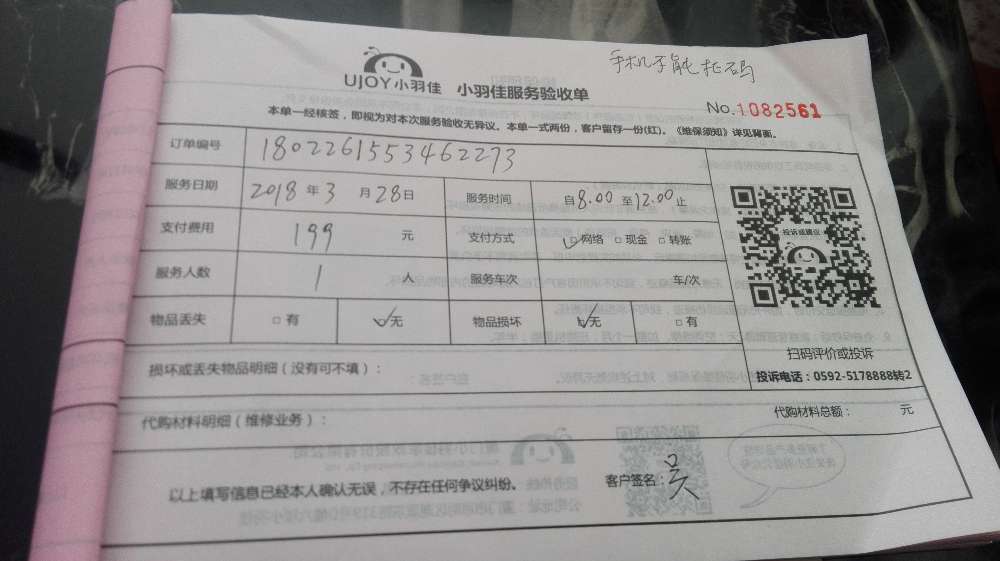 手机不能扫码
UJOY小羽佳 小羽佳服务验收单
No.1082561
本单一经核签，即视为对本次服务验收无异议。本单一式两份，客户留存一份(红)。《维保须知》详见背面。
订单编号 1802261553462273
服务日期 2018 年 3 月 28 日 服务时间 自 8.00 至 12.00 止
支付费用 199 元 支付方式 ☑网络 □现金 □转账
投诉或建议
服务人数 1 人 服务车次 车/次
物品丢失 □有 ☑无 物品损坏 ☑无 □有
扫码评价或投诉
损坏或丢失物品明细（没有可不填）：
投诉电话：0592-5178888转2
代购材料明细（维修业务）：
代购材料总额： 元
以上填写信息已经本人确认无误，不存在任何争议纠纷。 客户签名：吴